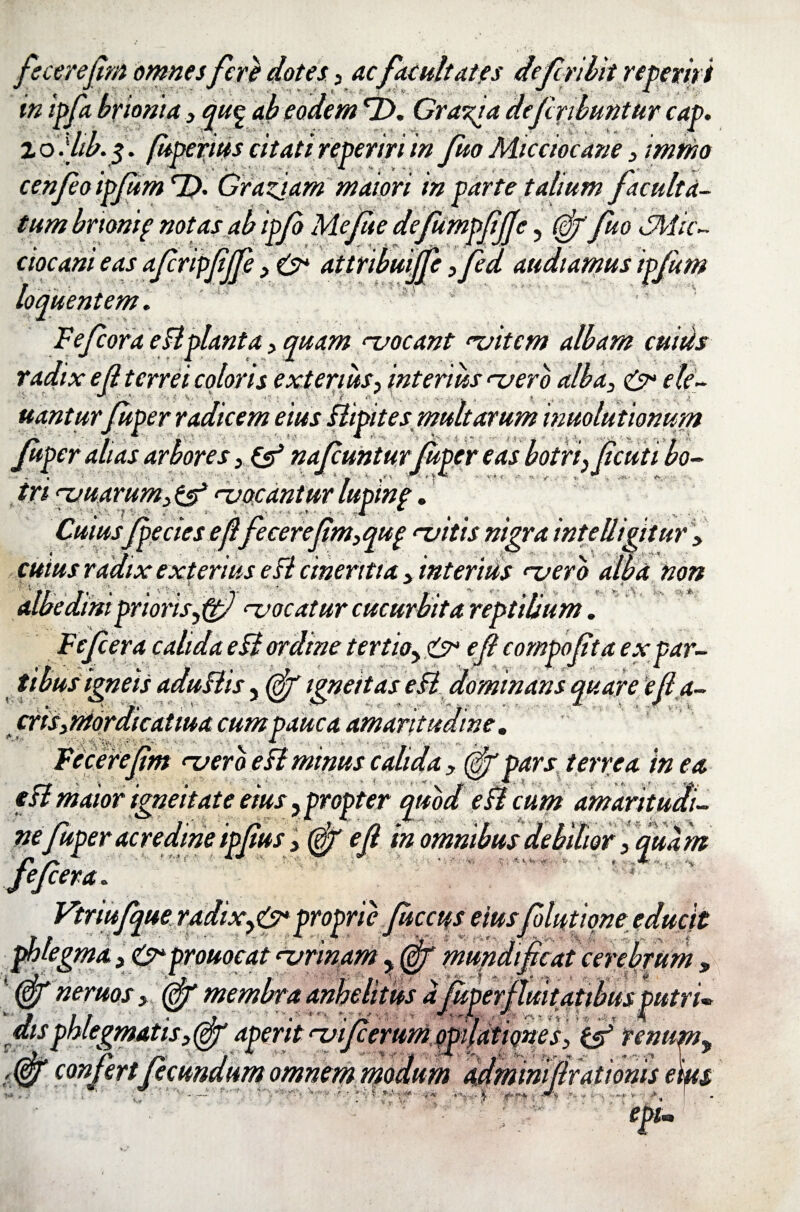 feceresim omnes ferè dotes, ac facultates describit reperiri
in ipsa brionia, quę ab eodem D. Grazia describuntur cap.
20. lib. 3. superius citati reperiri in suo Micciocane, immo
censeo ipsum D. Graziam maiori in parte talium faculta-
tum brionię notas ab ipso Mesue desumpsisse, & suo Mic-
ciocani eas ascripsisse, & attribuisse, sed audiamus ipsum
loquentem.
Fescora est planta, quam vocant vitem albam cuiùs
radix est terrei coloris exterius, interius vero alba, & ele-
uantur super radicem eius stipites multarum inuolutionum
super alias arbores, & nascuntur super eas botri, sicuti bo-
tri vuarum, & vocantur lupinę.
Cuius species est feceresim, quę vitis nigra intelligitur,
cuius radix exterius est cineritia, interius vero alba non
albedini prioris, & vocatur cucurbita reptilium.
Fescera calida est ordine tertio, & est composita ex par-
tibus igneis adustis, & igneitas est dominans quare est a-
cris, mordicatiua cum pauca amaritudine.
Feceresim vero est minus calida, & pars terrea in ea
est maior igneitate eius, propter quod est cum amaritudi-
ne super acredine ipsius, & est in omnibus debilior, quàm
fescera.
Vtriusque radix, & proprie succus eius solutione educit
phlegma, & prouocat vrinam, & mundificat cerebrum,
& neruos, & membra anhelitus à superfluitatibus putri-
dis phlegmatis, & aperit viscerum opilationes, & renum,
& confert secundum omnem modum administrationis eius
epi-